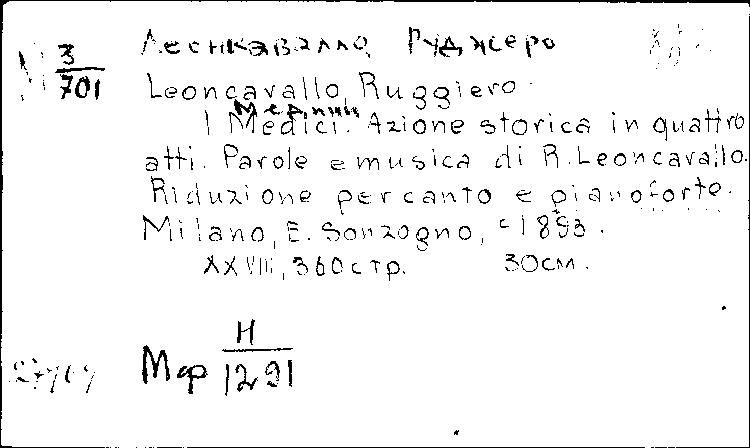 М 3/701
Леонкавалло, Руджеро
Leoncavallo, Ruggiero.
Медичи
I Medici. Azione storica in quattro
atti. Parole e musica di R. Leoncavallo.
Riduzione per canto e pianoforte.
Milano, E. Sonzogno, c1893.
XXVIII, 360 стр. 30 см.
Мф Н/1291